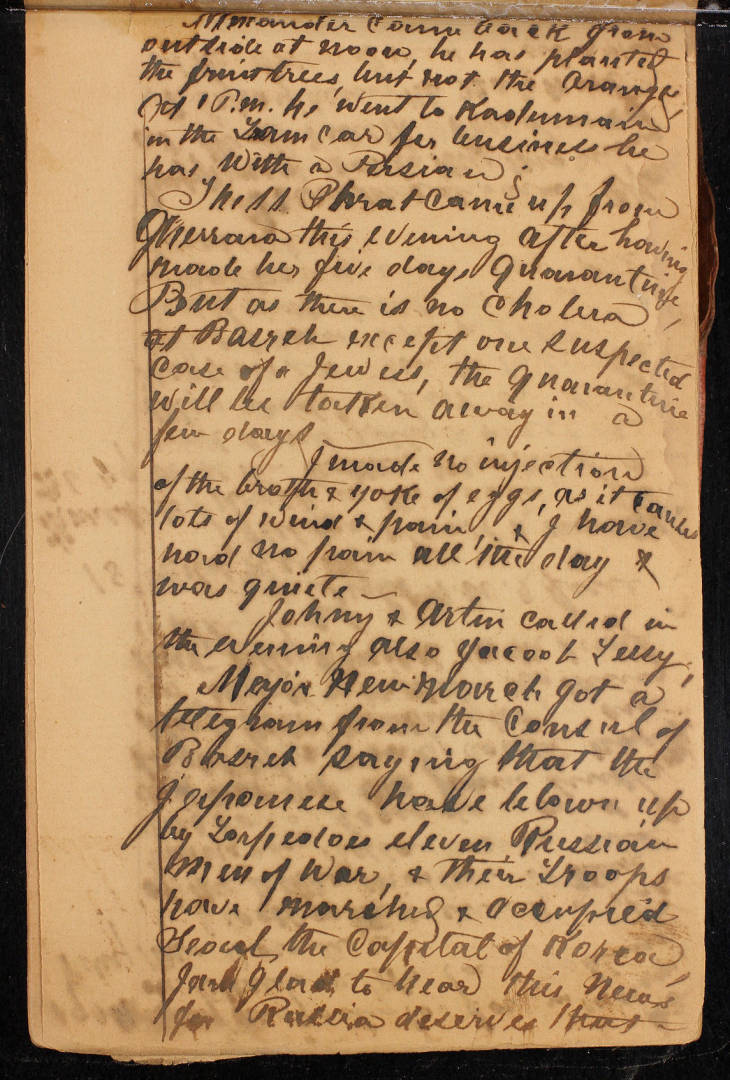 Alexander came back from
outside at noon, he has planted
the fruit trees, but not the Orange,
At 1 P.m. he went to Kadumain
in the Tram car for business he
has with a Persian;
The SS. Phrat came up from
Gherrara this evening after having
made her five days Quarantine,
But as there is no Cholera
at Basreh except one suspected
case of a Jewess, the quarantine
will be taken away in a
few days
I made no injection
of the broth & yoke of eggs, as it causes
lots of wind & pain, & I have
had no pain all the day &
was quiete
Johny & Artin called in
the evening also Yacoob Tessy,
Major Newmarch got a
telegram from the Consul of
Basreh saying that the
Japonese have blown up
by Torpedoes eleven Russian
Men of War, & their Troops
have marched & occupied
Seoul, the Capital of Korea,
I am glad to hear this news
for Russia deserves that